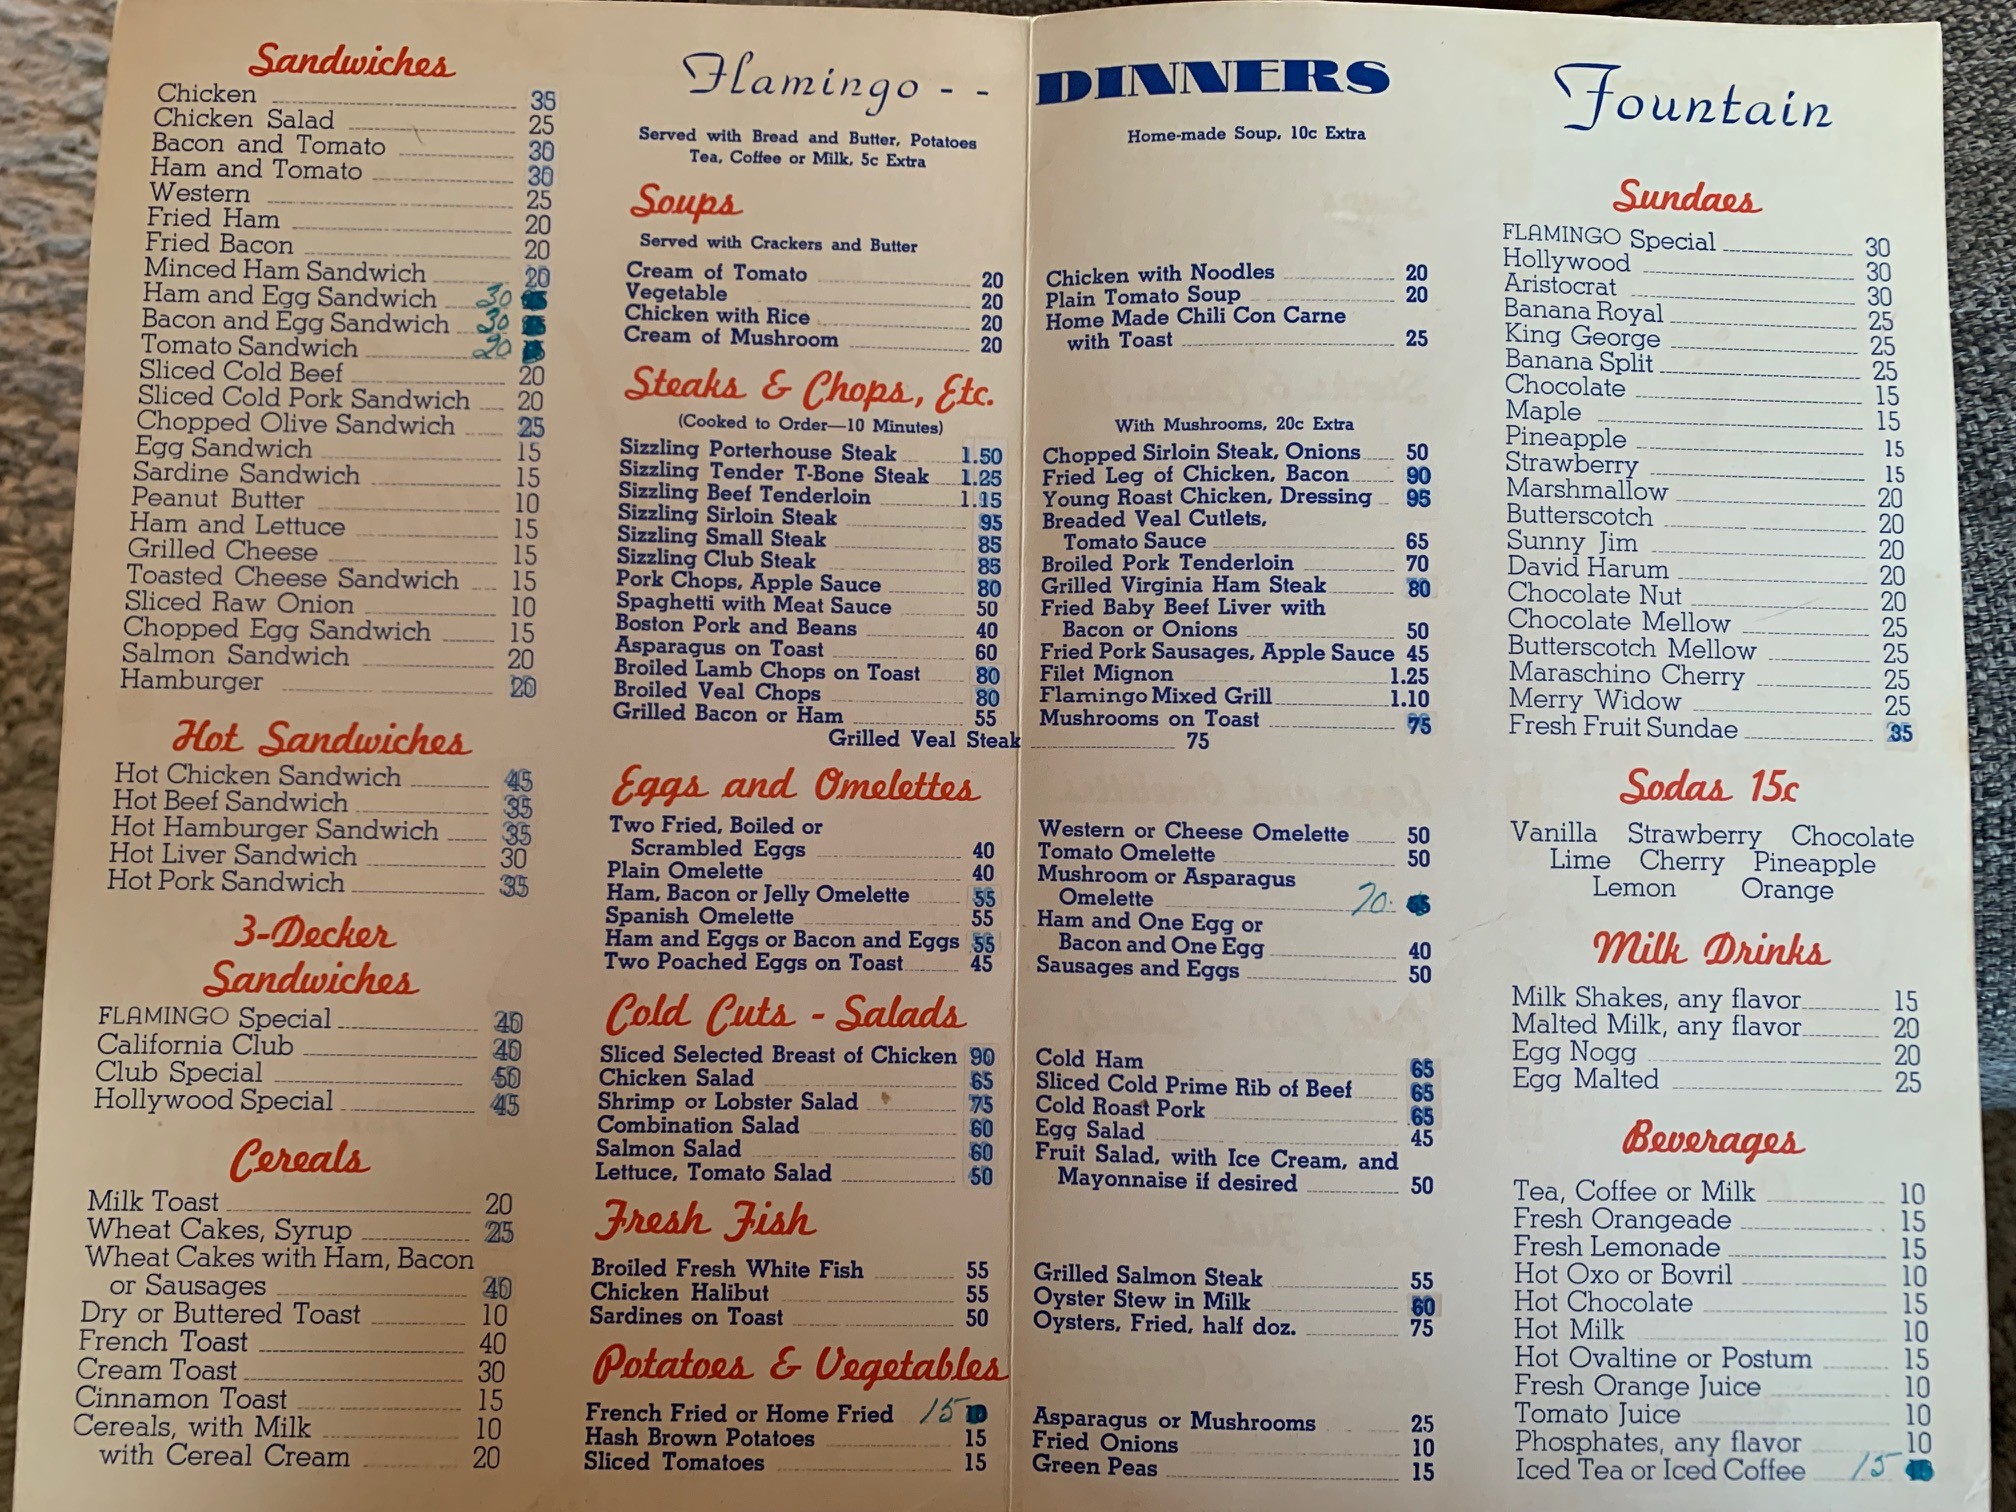 Sandwiches
Chicken 35
Chicken Salad 25
Bacon and Tomato 30
Ham and Tomato 30
Western 25
Fried Ham 20
Fried Bacon 20
Minced Ham Sandwich 20
Ham and Egg Sandwich 30
Bacon and Egg Sandwich 30
Tomato Sandwich 20
Sliced Cold Beef 20
Sliced Cold Pork Sandwich 20
Chopped Olive Sandwich 25
Egg Sandwich 15
Sardine Sandwich 15
Peanut Butter 10
Ham and Lettuce 15
Grilled Cheese 15
Toasted Cheese Sandwich 15
Sliced Raw Onion 10
Chopped Egg Sandwich 15
Salmon Sandwich 20
Hamburger 20
Hot Sandwiches
Hot Chicken Sandwich 45
Hot Beef Sandwich 35
Hot Hamburger Sandwich 35
Hot Liver Sandwich 30
Hot Pork Sandwich 35
3-Decker
Sandwiches
FLAMINGO Special 40
California Club 40
Club Special 50
Hollywood Special 45
Cereals
Milk Toast 20
Wheat Cakes, Syrup 25
Wheat Cakes with Ham, Bacon
or Sausages 40
Dry or Buttered Toast 10
French Toast 40
Cream Toast 30
Cinnamon Toast 15
Cereals, with Milk 10
with Cereal Cream 20
Flamingo - - DINNERS
Served with Bread and Butter, Potatoes
Tea, Coffee or Milk, 5c Extra
Home-made Soup, 10c Extra
Soups
Served with Crackers and Butter
Cream of Tomato 20
Vegetable 20
Chicken with Rice 20
Cream of Mushroom 20
Chicken with Noodles 20
Plain Tomato Soup 20
Home Made Chili Con Carne
with Toast 25
Steaks & Chops, Etc.
(Cooked to Order—10 Minutes)
Sizzling Porterhouse Steak 1.50
Sizzling Tender T-Bone Steak 1.25
Sizzling Beef Tenderloin 1.15
Sizzling Sirloin Steak 95
Sizzling Small Steak 85
Sizzling Club Steak 85
Pork Chops, Apple Sauce 80
Spaghetti with Meat Sauce 50
Boston Pork and Beans 40
Asparagus on Toast 60
Broiled Lamb Chops on Toast 80
Broiled Veal Chops 80
Grilled Bacon or Ham 55
With Mushrooms, 20c Extra
Chopped Sirloin Steak, Onions 50
Fried Leg of Chicken, Bacon 90
Young Roast Chicken, Dressing 95
Breaded Veal Cutlets,
Tomato Sauce 65
Broiled Pork Tenderloin 70
Grilled Virginia Ham Steak 80
Fried Baby Beef Liver with
Bacon or Onions 50
Fried Pork Sausages, Apple Sauce 45
Filet Mignon 1.25
Flamingo Mixed Grill 1.10
Mushrooms on Toast 75
Grilled Veal Steak 75
Eggs and Omelettes
Two Fried, Boiled or
Scrambled Eggs 40
Plain Omelette 40
Ham, Bacon or Jelly Omelette 55
Spanish Omelette 55
Ham and Eggs or Bacon and Eggs 55
Two Poached Eggs on Toast 45
Western or Cheese Omelette 50
Tomato Omelette 50
Mushroom or Asparagus
Omelette 70.
Ham and One Egg or
Bacon and One Egg 40
Sausages and Eggs 50
Cold Cuts - Salads
Sliced Selected Breast of Chicken 90
Chicken Salad 65
Shrimp or Lobster Salad 75
Combination Salad 60
Salmon Salad 60
Lettuce, Tomato Salad 50
Cold Ham 65
Sliced Cold Prime Rib of Beef 65
Cold Roast Pork 65
Egg Salad 45
Fruit Salad, with Ice Cream, and
Mayonnaise if desired 50
Fresh Fish
Broiled Fresh White Fish 55
Chicken Halibut 55
Sardines on Toast 50
Grilled Salmon Steak 55
Oyster Stew in Milk 60
Oysters, Fried, half doz. 75
Potatoes & Vegetables
French Fried or Home Fried 15
Hash Brown Potatoes 15
Sliced Tomatoes 15
Asparagus or Mushrooms 25
Fried Onions 10
Green Peas 15
Fountain
Sundaes
FLAMINGO Special 30
Hollywood 30
Aristocrat 30
Banana Royal 25
King George 25
Banana Split 25
Chocolate 15
Maple 15
Pineapple 15
Strawberry 15
Marshmallow 20
Butterscotch 20
Sunny Jim 20
David Harum 20
Chocolate Nut 20
Chocolate Mellow 25
Butterscotch Mellow 25
Maraschino Cherry 25
Merry Widow 25
Fresh Fruit Sundae 35
Sodas 15c
Vanilla Strawberry Chocolate
Lime Cherry Pineapple
Lemon Orange
Milk Drinks
Milk Shakes, any flavor 15
Malted Milk, any flavor 20
Egg Nogg 20
Egg Malted 25
Beverages
Tea, Coffee or Milk 10
Fresh Orangeade 15
Fresh Lemonade 15
Hot Oxo or Bovril 10
Hot Chocolate 15
Hot Milk 10
Hot Ovaltine or Postum 15
Fresh Orange Juice 10
Tomato Juice 10
Phosphates, any flavor 10
Iced Tea or Iced Coffee 15